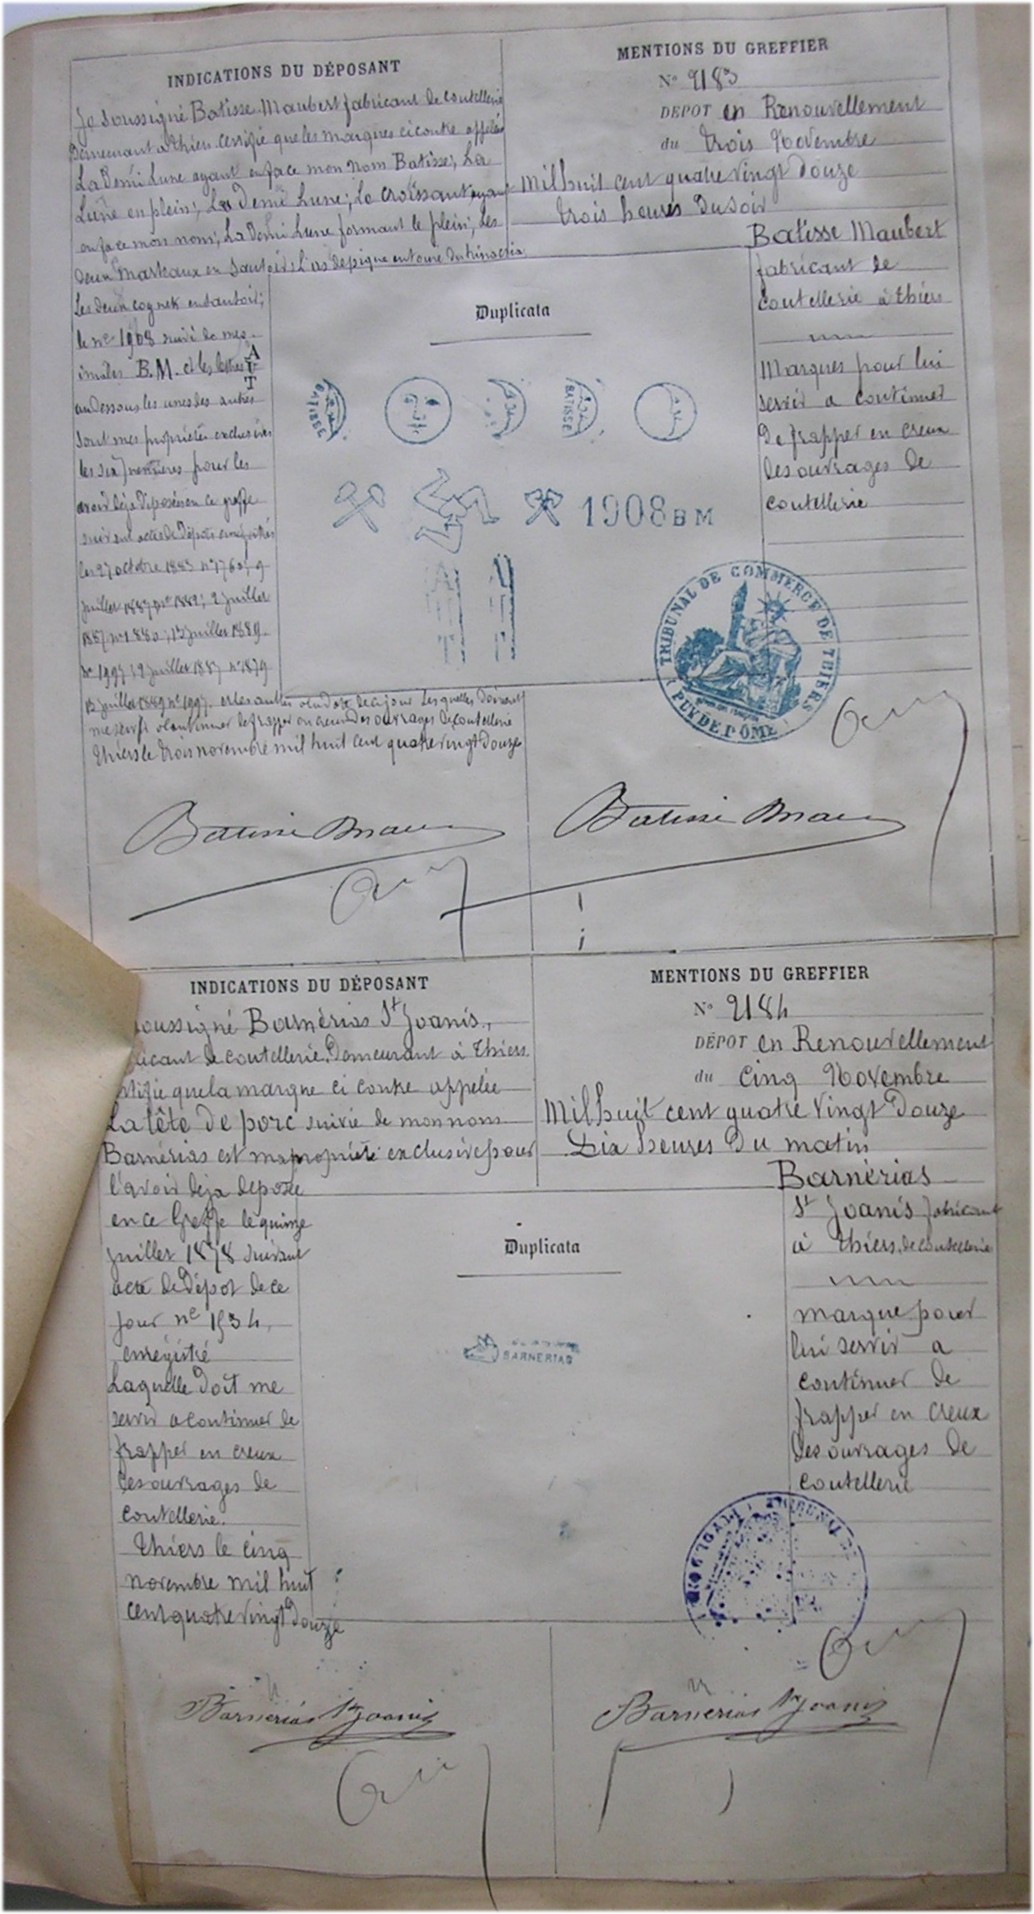 INDICATIONS DU DÉPOSANT
Je soussigné Batisse-Maubert fabricant de coutellerie
Demeurant à Thiers certifie que les marques ci contre appelées
La Demi Lune ayant en face mon nom Batisse; La
Lune en plein; La Demi Lune; Le Croissant ayant
en face mon nom; La Demi Lune formant le plein; Les
Deux Marteaux en Sautoir;
Les deux cognets en sautoir;
le no 1908 suivi de mes
initiales B.M. et les lettres A T
au dessous les unes des autres
sont mes propriétés exclusives
les six premières pour les
avoir déjà déposées en ce greffe
suivant actes de dépots enregistrés
les 27 octobre 1883 no 1760; 9
juillet 1887 no 1882; 2 juillet
1887 no 1880; 12 juillet 1889
no 1997; 2 juillet 1887 no 1879
12 juillet 1889 no 1997 et les autres Lesquelles doivent
me servir a continuer de frapper en creux des ouvrages de coutellerie
Thiers le trois novembre mil huit cent quatre vingt douze
MENTIONS DU GREFFIER
No 2183
DÉPOT en Renouvellement
du trois Novembre
Mil huit cent quatre vingt douze
trois heures du soir
Batisse Maubert
fabricant de
coutellerie à Thiers
Marques pour lui
servir a continuer
De frapper en creux
des ouvrages de
coutellerie
Duplicata
BATISSE
BATISSE
1908 BM
TRIBUNAL DE COMMERCE DE THIERS
PUY DE DÔME
Batisse Mau
Batisse Mau
INDICATIONS DU DÉPOSANT
soussigné Barnérias St Joanis,
ricant de coutellerie, Demeurant à Thiers
rtifie que la marque ci contre appelée
La tête de porc suivie de mon nom
Barnérias est ma propriété exclusive pour
l'avoir déja déposée
en ce Greffe le quinze
juillet 1878 suivant
acte de Dépot de ce
jour no 1534,
enregistré
Laquelle Doit me
servir a continuer de
frapper en creux
des ouvrages de
coutellerie.
Thiers le cinq
novembre mil huit
cent quatre vingt Douze
MENTIONS DU GREFFIER
No 2184
DÉPOT en Renouvellement
du Cinq Novembre
Mil huit cent quatre vingt Douze
Dix heures Du matin
Barnérias
St Joanis fabricant
à Thiers, de coutellerie
marque pour
lui servir a
continuer de
frapper en creux
des ouvrages de
coutellerie
Duplicata
BARNERIAS
Barnérias St Joanis
Barnérias St Joanis